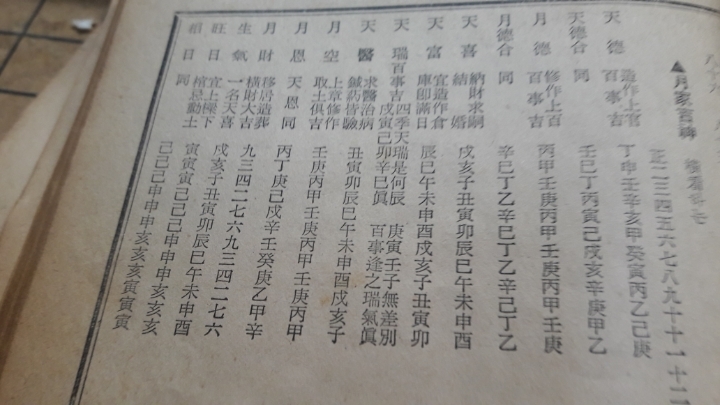 ▲月家吉神
正二三四五六七八九十十一十二
天德 造作上官百事吉 丁申壬辛亥甲癸寅丙乙己庚
天德合 同 壬巳丁丙寅己戌亥辛庚甲乙
月德 修作上百百事吉 丙甲壬庚丙甲壬庚丙甲壬庚
月德合 同 辛己丁乙辛己丁乙辛己丁乙
天喜 納財求嗣結婚 戌亥子丑寅卯辰巳午未申酉
天富 宜造作倉庫即滿日 辰巳午未申酉戌亥子丑寅卯
天瑞 百事吉 四季天瑞是何辰 庚寅壬子無差別
戊寅己卯辛巳眞 百事逢之瑞氣眞
天醫 求醫治病鍼葯皆驗 丑寅卯辰巳午未申酉戌亥子
月空 上章修作取土俱吉 壬庚丙甲壬庚丙甲壬庚丙甲
月恩 天恩同 丙丁庚己戊辛壬癸庚乙甲辛
月財 移居造葬橫財大吉 九三四二七六九三四二七六
生氣 一名天喜 戌亥子丑寅卯辰巳午未申酉
旺日 宜上樑下棺忌動土 寅寅寅己己己申申申亥亥亥
相日 同 己己己申申申亥亥亥寅寅寅